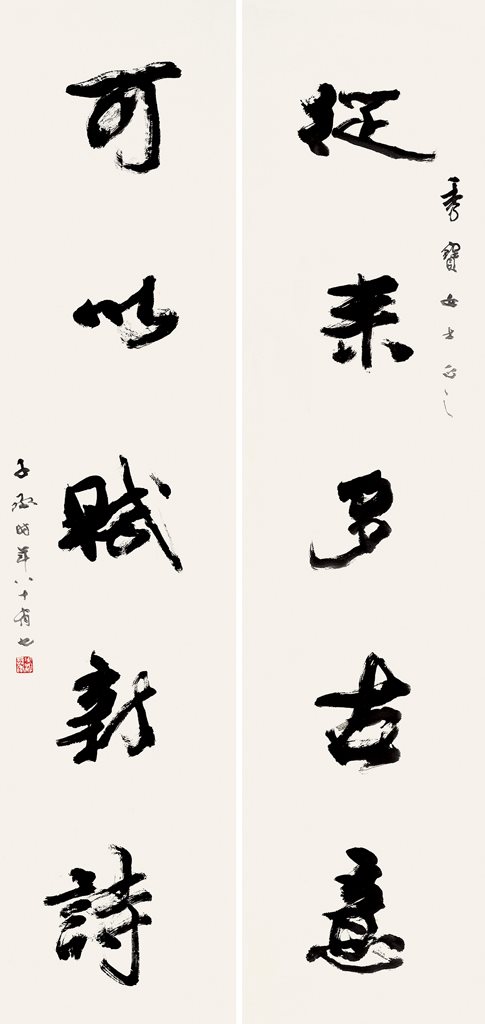 秀寶女士正之
從來多古意
可以賦新詩
子丞時年八十有七